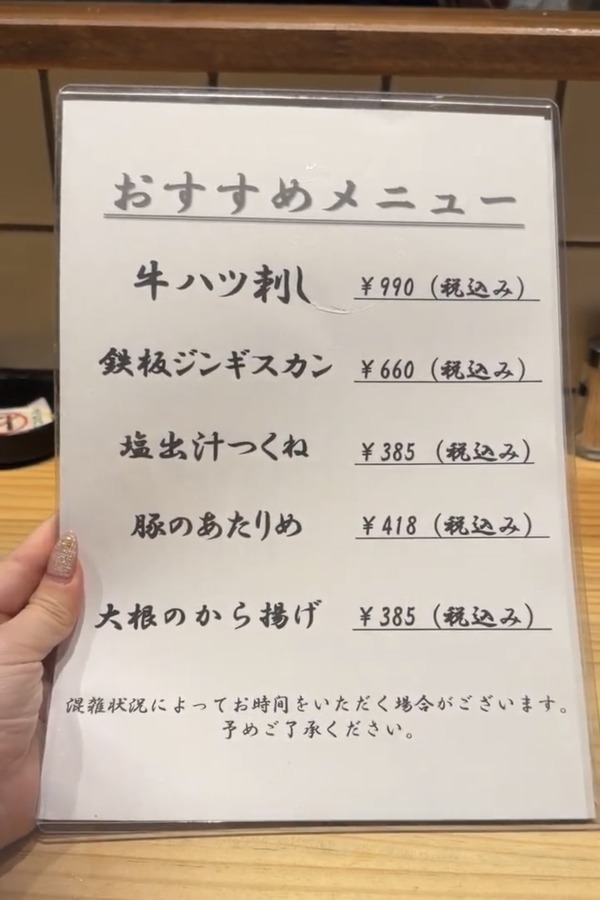 おすすめメニュー
牛ハツ刺し ¥990（税込み）
鉄板ジンギスカン ¥660（税込み）
塩出汁つくね ¥385（税込み）
豚のあたりめ ¥418（税込み）
大根のから揚げ ¥385（税込み）
混雑状況によってお時間をいただく場合がございます。
予めご了承ください。